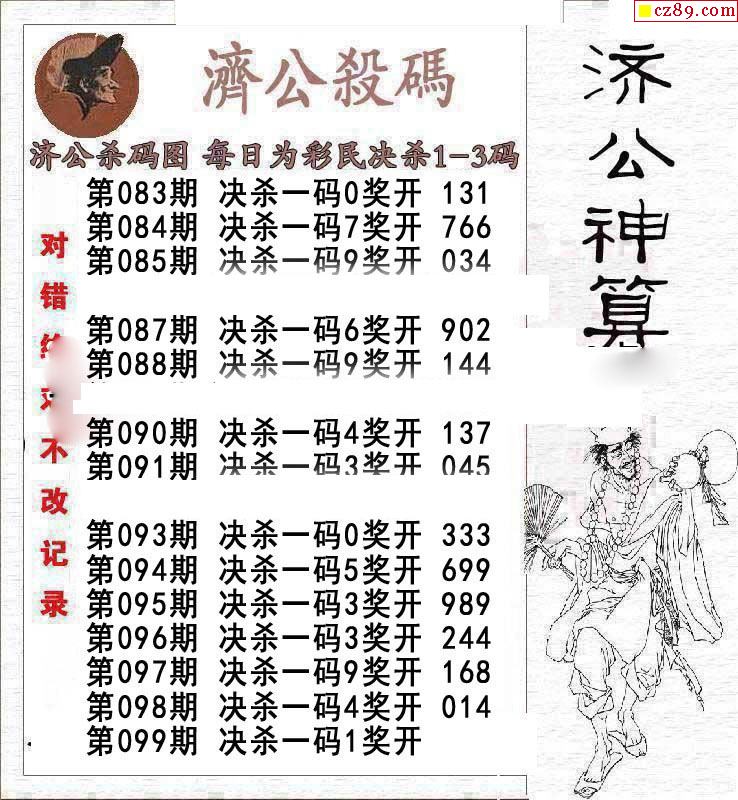 cz89.com
濟公殺碼
济公杀码图 每日为彩民决杀1-3码
第083期 决杀一码0奖开 131
第084期 决杀一码7奖开 766
第085期 决杀一码9奖开 034
第087期 决杀一码6奖开 902
第088期 决杀一码9奖开 144
第090期 决杀一码4奖开 137
第091期 决杀一码3奖开 045
第093期 决杀一码0奖开 333
第094期 决杀一码5奖开 699
第095期 决杀一码3奖开 989
第096期 决杀一码3奖开 244
第097期 决杀一码9奖开 168
第098期 决杀一码4奖开 014
第099期 决杀一码1奖开
对错
不改记录
济公神算